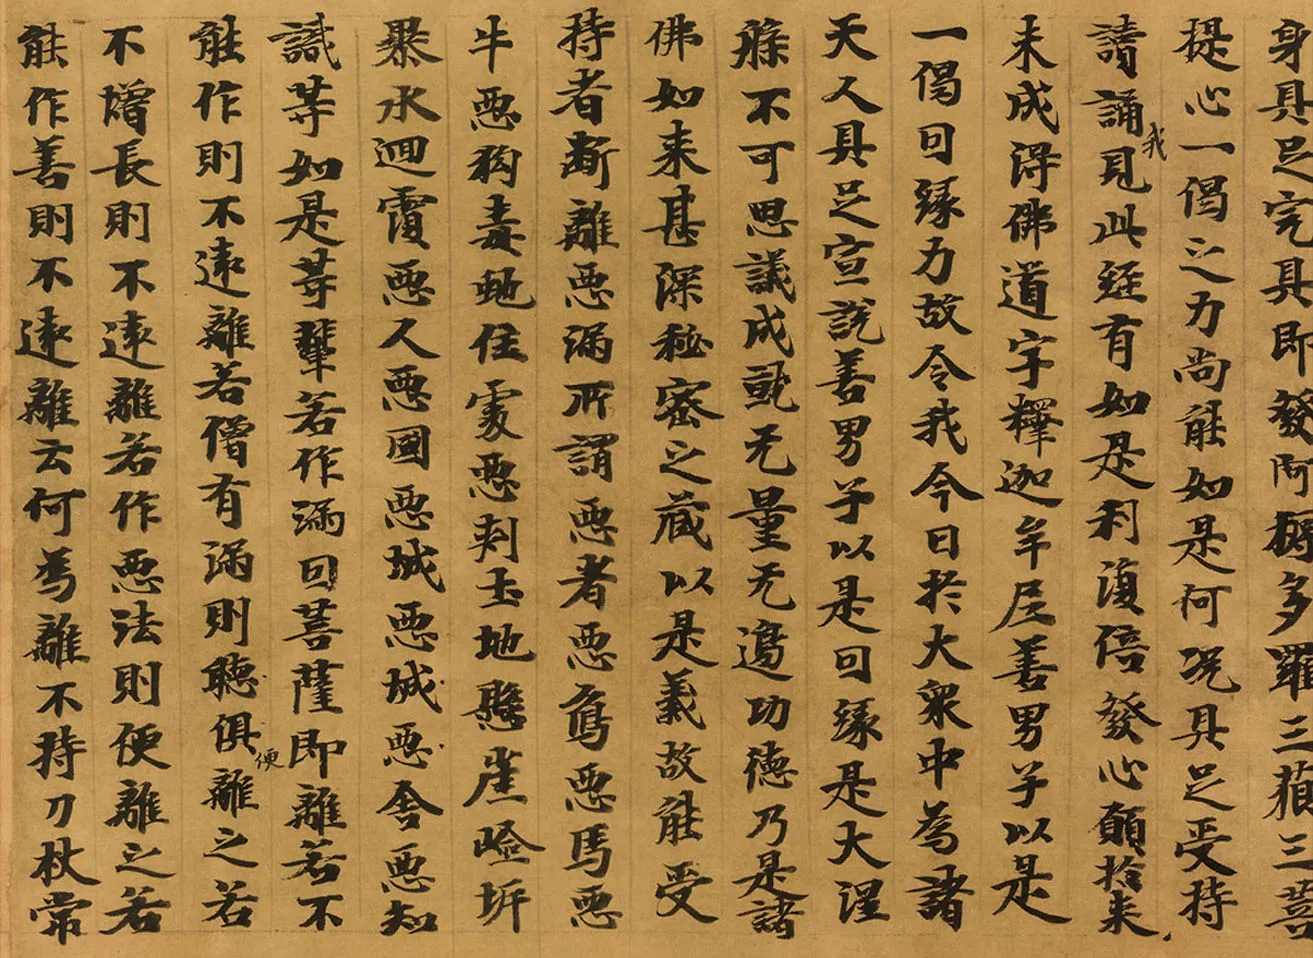 身具足完具即發阿耨多羅三藐三菩
提心一偈之力尚能如是何況具足受持
請誦我見此經有如是利復倍發心願於未
来成得佛道字釋迦牟尼善男子以是
一偈因緣力故令我今日於大衆中為諸
天人具足宣說善男子以是因緣是大涅
槃不可思議成就无量无邊功德乃是諸
佛如来甚深秘密之藏以是義故能受
持者斷離惡漏所謂惡者惡為惡馬惡
牛惡狗毒虵住處惡刾土地懸崖嶮圻
㬥水迴澓惡人惡國惡城惡城惡舍惡知
識等如是等輩若作漏因菩薩即離若不
能作則不遠離若僧有漏則聽俱便離之若
不增長則不遠離若作惡法則便離之若
能作善則不遠離云何為離不持刀杖常